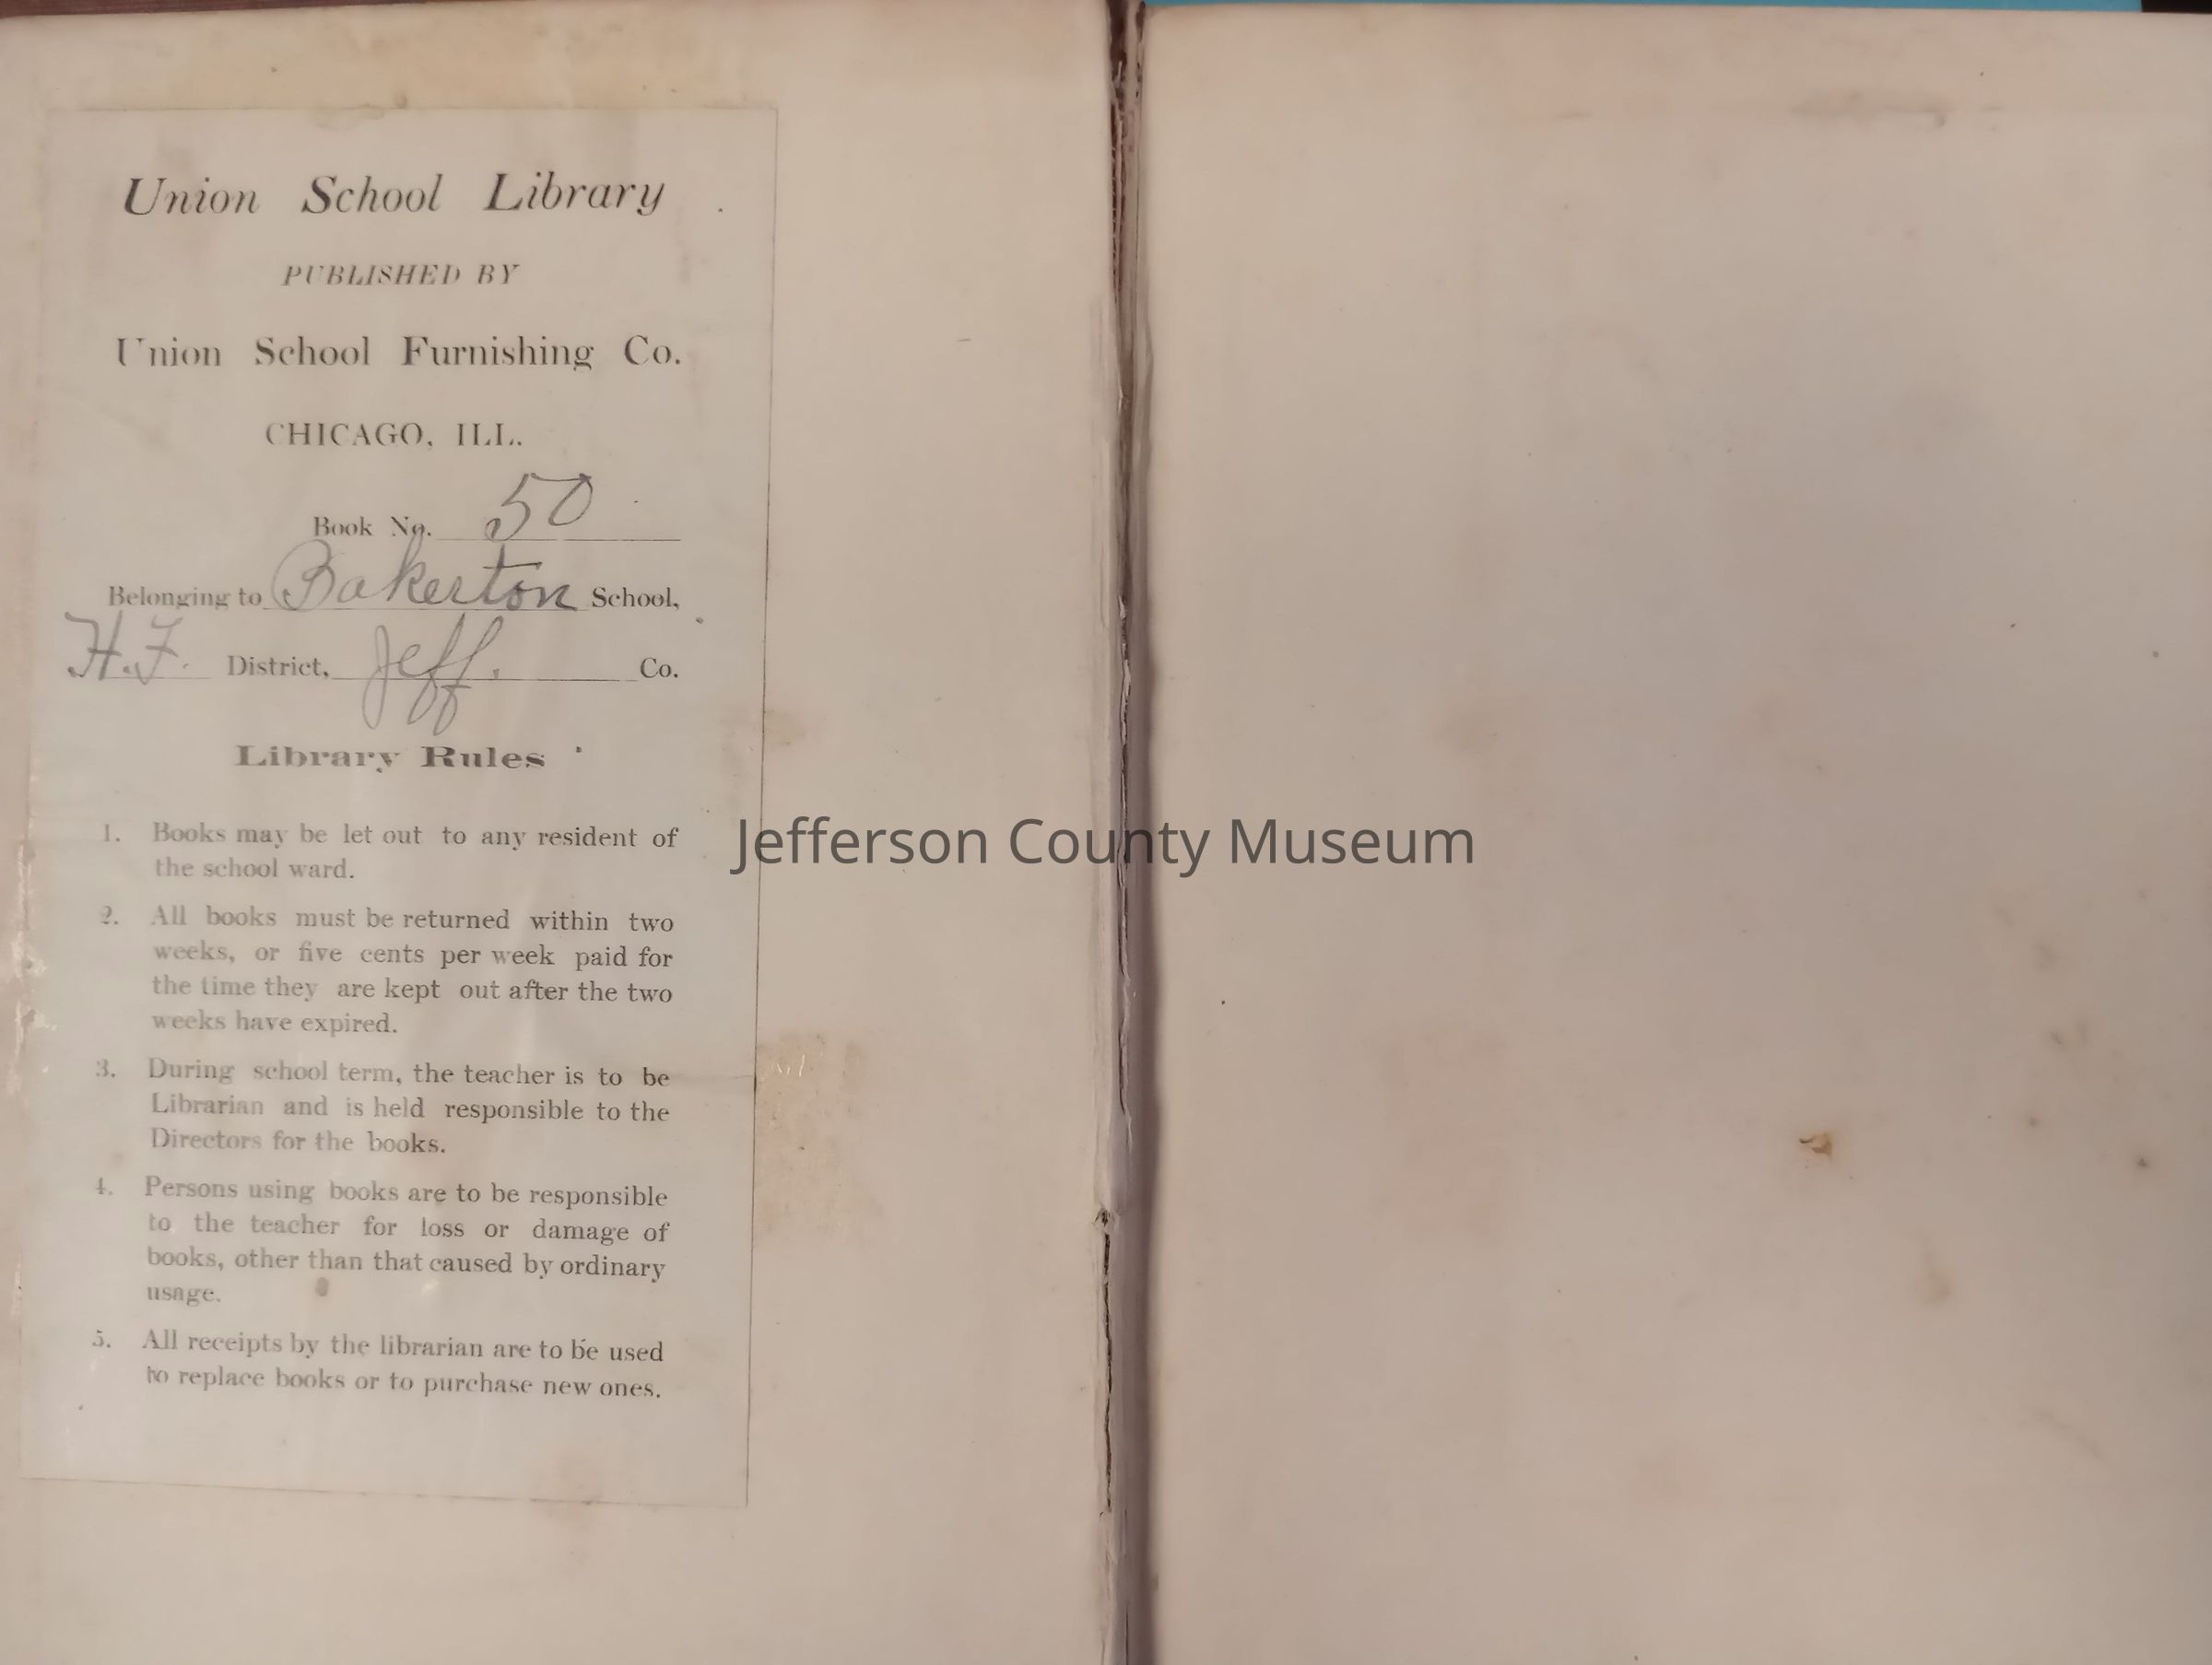 Union School Library
PUBLISHED BY
Union School Furnishing Co.
CHICAGO, ILL.
Book No. 50
Belonging to Bakerton School,
H.F. District, Jeff. Co.
Library Rules
1. Books may be let out to any resident of
the school ward.
2. All books must be returned within two
weeks, or five cents per week paid for
the time they are kept out after the two
weeks have expired.
3. During school term, the teacher is to be
Librarian and is held responsible to the
Directors for the books.
4. Persons using books are to be responsible
to the teacher for loss or damage of
books, other than that caused by ordinary
usage.
5. All receipts by the librarian are to be used
to replace books or to purchase new ones.
Jefferson County Museum